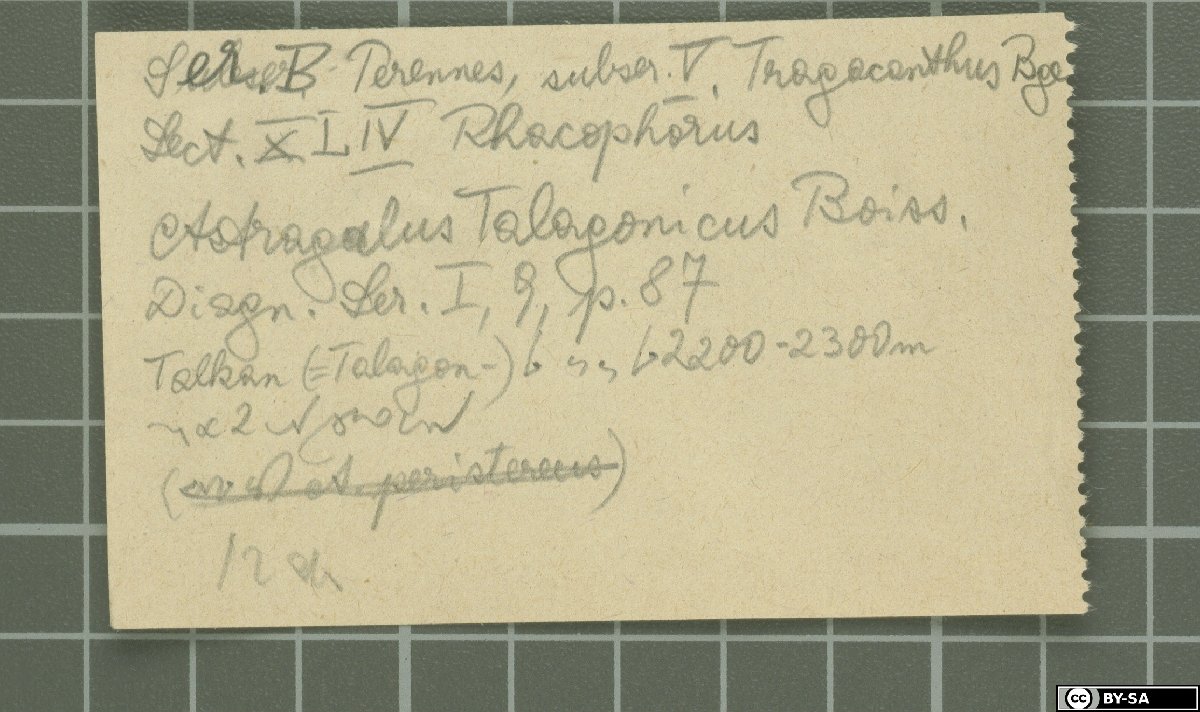 Ser. B Perennes, subser. V. Tragacanthus Bge
Sect. XLIV Rhacophorus
Astragalus Talagonicus Boiss.
Diagn. Ser. I, 9, p. 87
Talkan (=Talagon-) 2200-2300m
2
(A. peristereus)
12
BY-SA